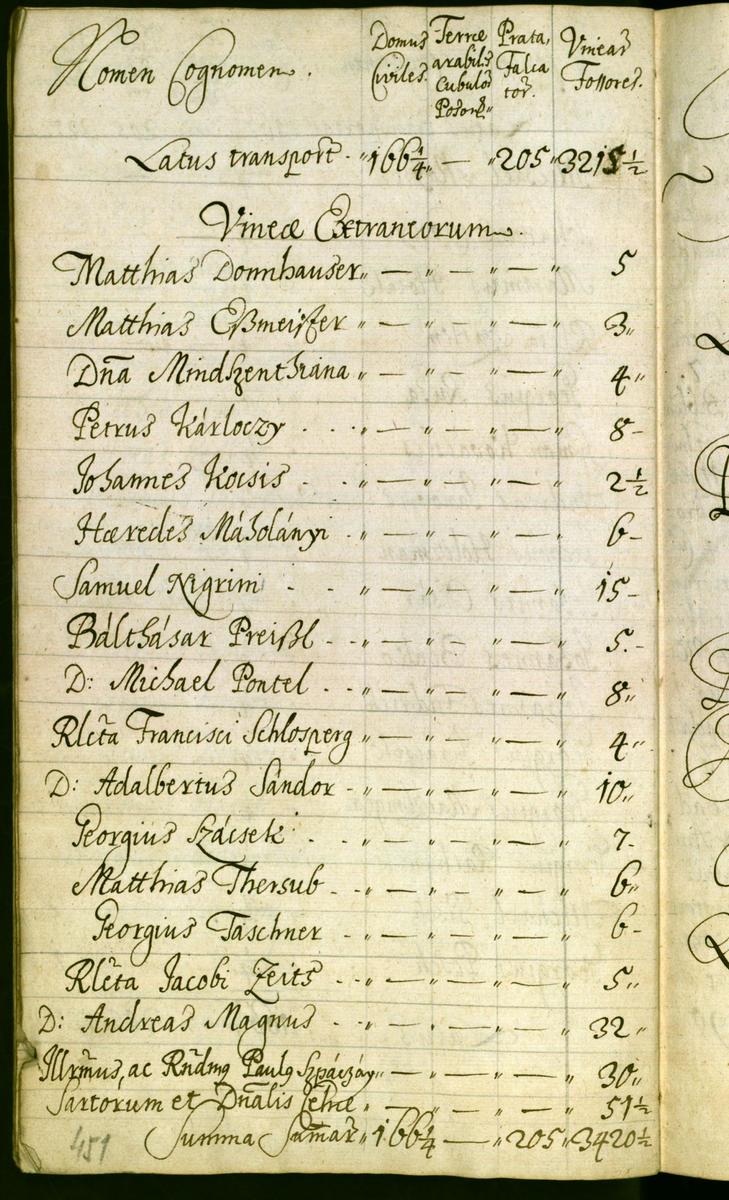 Nomen Cognomen. Domus Civiles. Terræ arabilis Cubulor Poson. Prata, Falcator. Vineas Fossores.
Latus transport. " 166 1/4 " — " 205 " 3215 1/2
Vineæ Extraneorum.
Matthias Donnhauser " — " — " — " 5
Matthias Eßmeister " — " — " — " 3 "
Dna Mindszenthiana " — " — " — " 4 "
Petrus Kárloczy " — " — " — " 8 -
Johannes Kocsis " — " — " — " 2 1/2
Hæredes Máholányi " — " — " — " 6 -
Samuel Nigrini " — " — " — " 15 -
Bálthásar Preißl " — " — " — " 5 -
D: Michael Pontel " — " — " — " 8 "
Rlcta Francisci Schlosperg " — " — " — " 4 "
D: Adalbertus Sándor " — " — " — " 10 "
Georgius Szácsek " — " — " — " 7 -
Matthias Thersub " — " — " — " 6 "
Georgius Taschner " — " — " — " 6 -
Rlcta Jacobi Zeits " — " — " — " 5 "
D: Andreas Magnus " — " — " — " 32 "
Illrmus, ac Rndmg Paulg Szpáczáy " — " — " — " 30 "
Sartorum et Dnalis " — " — " — " 51 1/2
Summa Sumar " 166 1/4 — " 205 " 3420 1/2
451